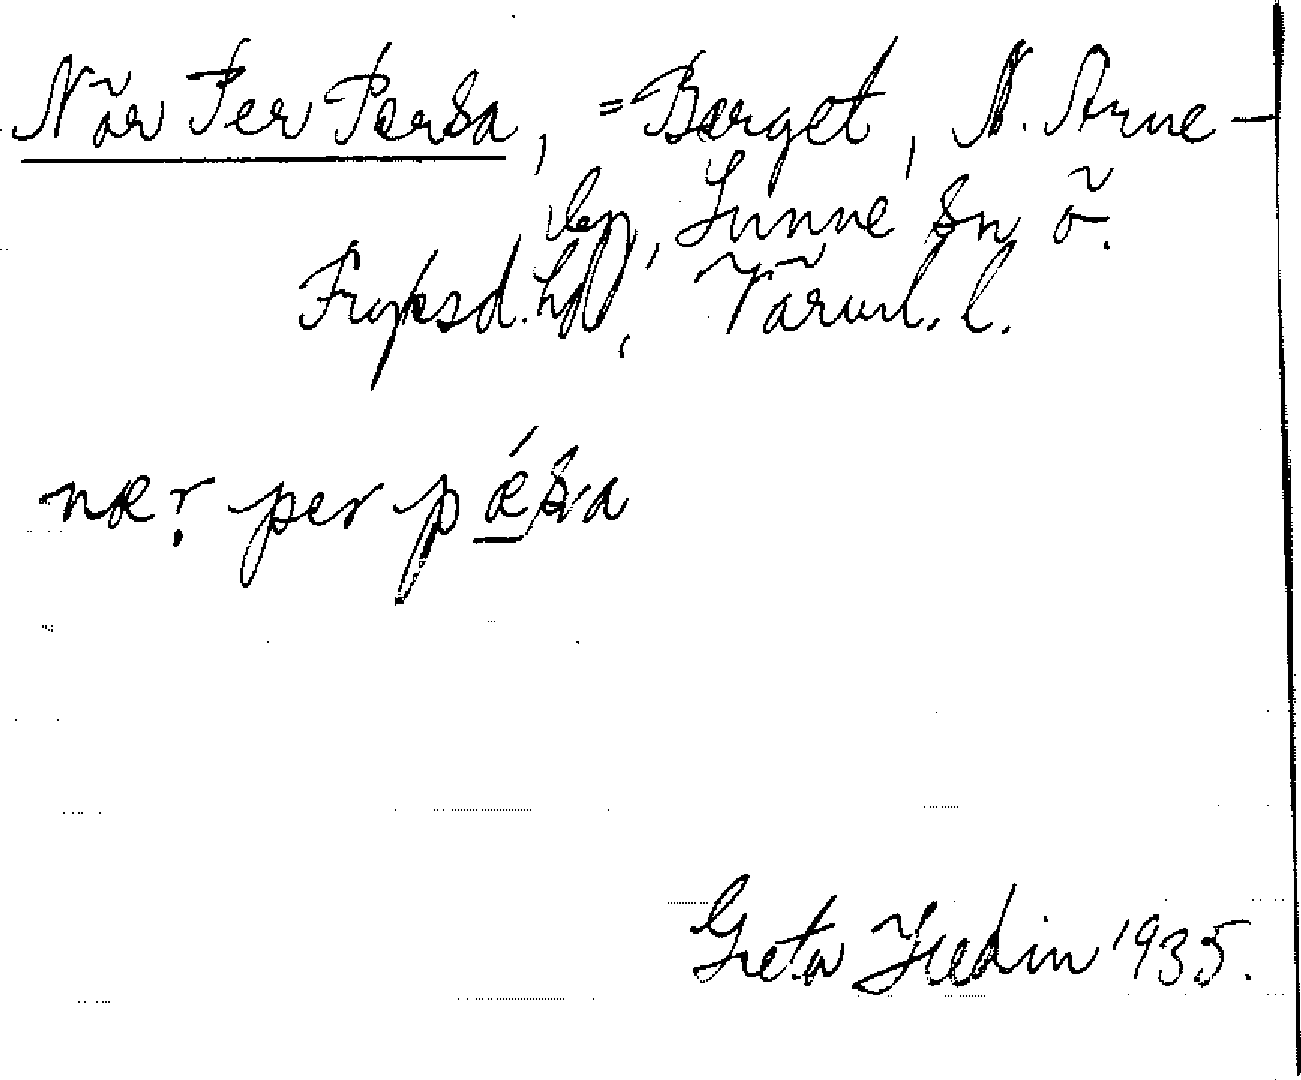 När Per Persa, = Berget, N. Arne-
by, Sunne sn ö.
Fryksd. hd, Värml. l.
nær per pǽsa
Greta Hedin 1935.